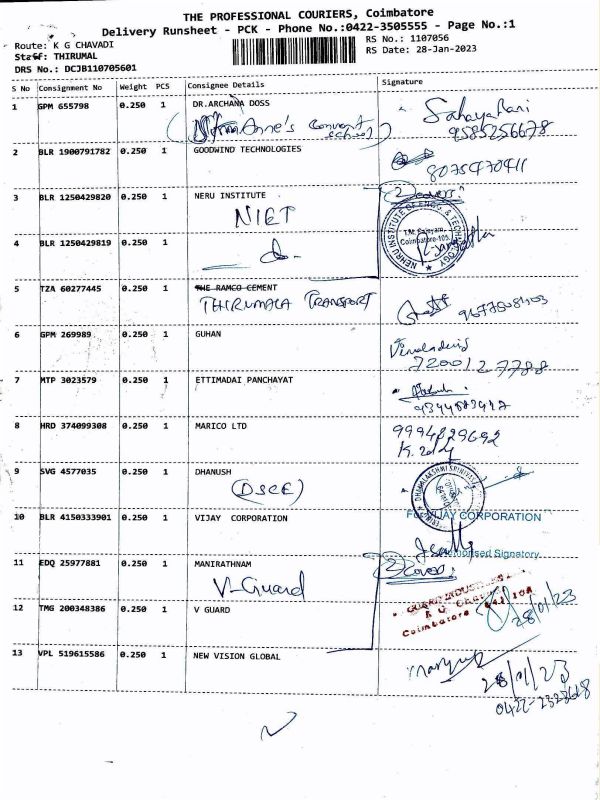 THE PROFESSIONAL COURIERS, Coimbatore
Delivery Runsheet - PCK - Phone No.:0422-3505555 - Page No.:1
Route: K G CHAVADI
RS No.: 1107056
Staff: THIRUMAL
RS Date: 28-Jan-2023
DRS No.: DCJB110705601
S No Consignment No Weight PCS Consignee Details Signature
1 GPM 655798 0.250 1 DR.ARCHANA DOSS
Anne's Convent School
Sahaya Rani
9585256678
2 BLR 1900791782 0.250 1 GOODWIND TECHNOLOGIES
8075470411
3 BLR 1250429820 0.250 1 NERU INSTITUTE
NIET
2 covers
NEHRU INSTITUTE OF ENGG. & TECHNOLOGY
Coimbatore-105
4 BLR 1250429819 0.250 1
5 TZA 60277445 0.250 1 THE RAMCO CEMENT
THIRUMALA TRANSPORT
6 GPM 269989 0.250 1 GUHAN
720012 7788
7 MTP 3023579 0.250 1 ETTIMADAI PANCHAYAT
8 HRD 374099308 0.250 1 MARICO LTD
9994829692
9 SVG 4577035 0.250 1 DHANUSH
(DSCE)
DHANALAKSHMI SRINIVASA
10 BLR 4150333901 0.250 1 VIJAY CORPORATION
For VIJAY CORPORATION
Authorised Signatory
11 EDQ 25977881 0.250 1 MANIRATHNAM
V-Guard
2 Covers
12 TMG 200348386 0.250 1 V GUARD
Coimbatore
28/01/23
13 VPL 519615586 0.250 1 NEW VISION GLOBAL
28/01/23